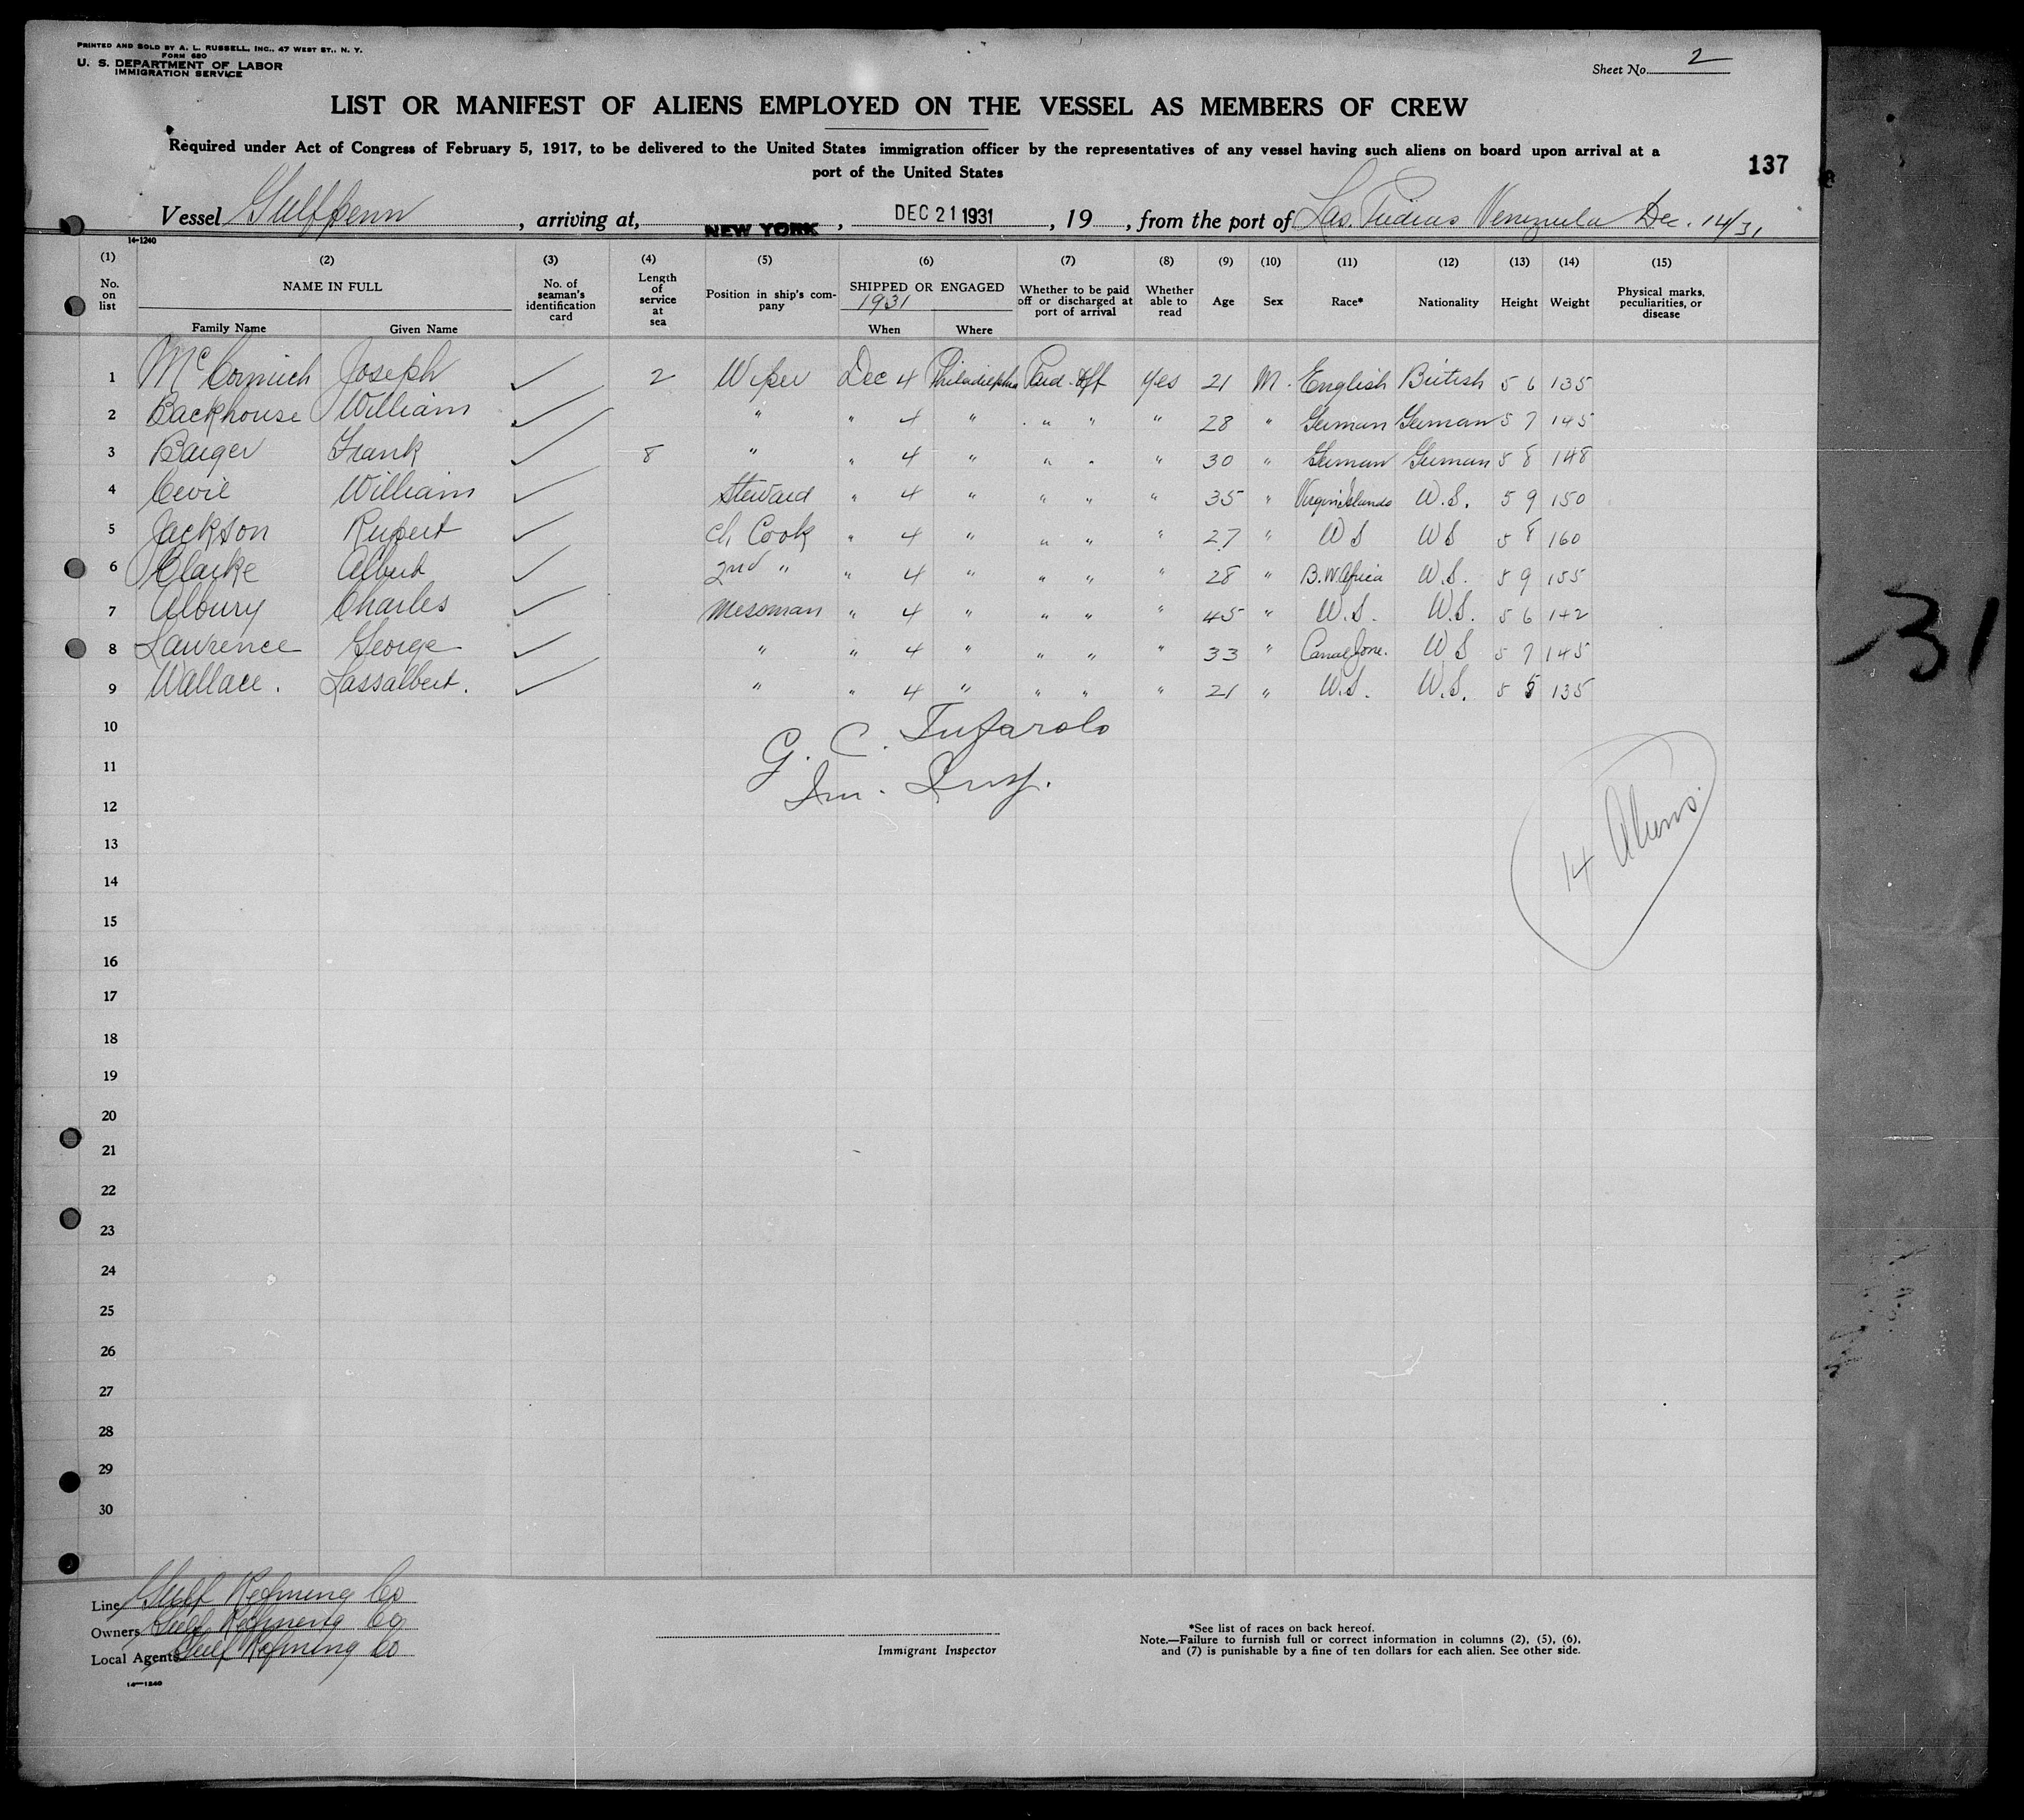 PRINTED AND SOLD BY A. L. RUSSELL, INC., 47 WEST ST., N. Y.
FORM 680
U. S. DEPARTMENT OF LABOR
IMMIGRATION SERVICE
Sheet No. 2
LIST OR MANIFEST OF ALIENS EMPLOYED ON THE VESSEL AS MEMBERS OF CREW
Required under Act of Congress of February 5, 1917, to be delivered to the United States immigration officer by the representatives of any vessel having such aliens on board upon arrival at a
port of the United States
137
Vessel Gulfpenn, arriving at, NEW YORK, DEC 21 1931, 19, from the port of Las Piedras Venezuela Dec. 14/31
14-1240
(1) (2) (3) (4) (5) (6) (7) (8) (9) (10) (11) (12) (13) (14) (15)
No. on list NAME IN FULL Family Name Given Name No. of seaman's identification card Length of service at sea Position in ship's company SHIPPED OR ENGAGED 1931 When Where Whether to be paid off or discharged at port of arrival Whether able to read Age Sex Race* Nationality Height Weight Physical marks, peculiarities, or disease
1 McCormick Joseph ✓ 2 Wiper Dec 4 Philadelphia Paid off Yes 21 M. English British 5 6 135
2 Backhouse William ✓ " " 4 " " " " 28 " German German 5 7 145
3 Barger Frank ✓ 8 " " 4 " " " " 30 " German German 5 8 148
4 William ✓ Steward " 4 " " " " 35 " Virgin Islands U.S. 5 9 150
5 Jackson Rupert ✓ Ch. Cook " 4 " " " " 27 " U S U S 5 8 160
6 Clarke Albert ✓ 2nd " " 4 " " " " 28 " B.W. Africa U.S. 5 9 155
7 Albury Charles ✓ Messman " 4 " " " " 45 " U.S. U.S. 5 6 142
8 Lawrence George ✓ " " 4 " " " " 33 " Canal Zone. U S 5 7 145
9 Wallace. Lassalbert. ✓ " " 4 " " " " 21 " U.S. U.S. 5 5 135
10
G. C. Tufarolo
11
Im. Insp.
12
13
14 Aliens.
14
15
16
17
18
19
20
21
22
23
24
25
26
27
28
29
30
31
Line Gulf Refining Co
Owners Gulf Refining Co
Local Agents Gulf Refining Co
14—1240
Immigrant Inspector
*See list of races on back hereof.
Note.—Failure to furnish full or correct information in columns (2), (5), (6),
and (7) is punishable by a fine of ten dollars for each alien. See other side.